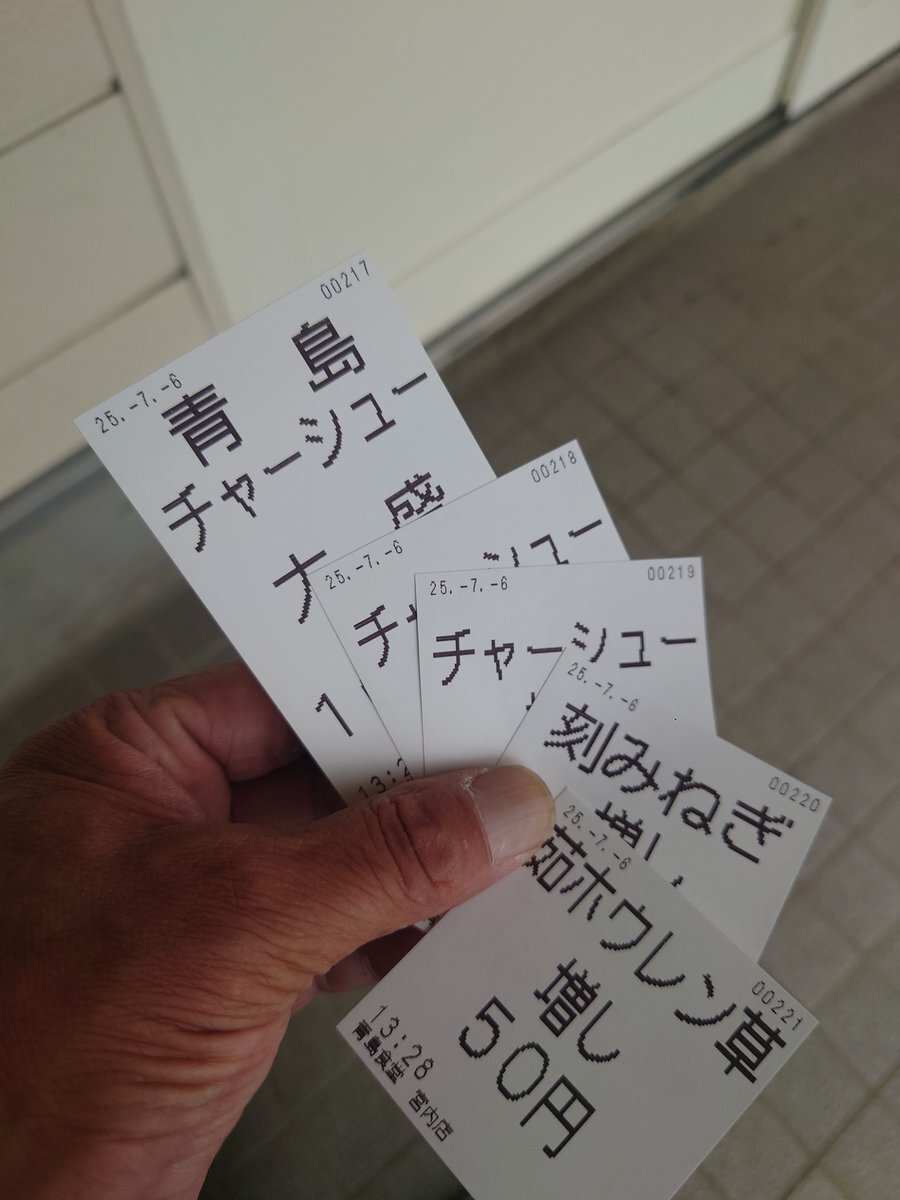 00217
25.-7.-6
青島
チャーシュー
大盛
1
00218
25.-7.-6
チャーシュー
13:2
00219
25.-7.-6
チャーシュー
00220
25.-7.-6
刻みねぎ
増し
00221
25.-7.-6
茹ホウレン草
増し
50円
13:28
青島食堂 宮内店